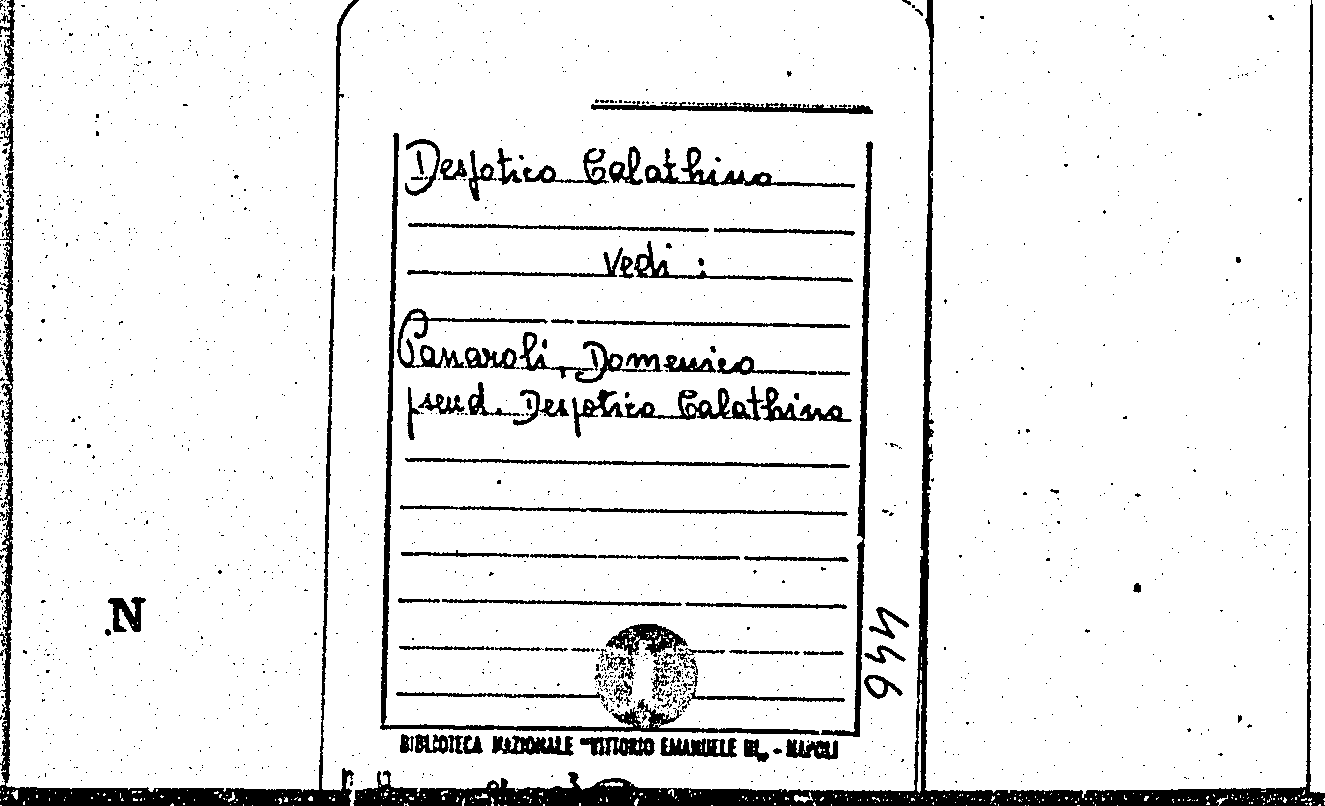 Despotico Calathino
Vedi :
Panaroli, Domenico
pseud. Despotico Calathino
446
N
BIBLIOTECA NAZIONALE "VITTORIO EMANUELE III„ - NAPOLI